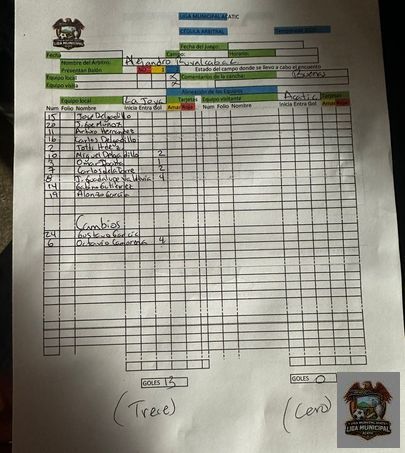 LIGA MUNICIPAL ACATIC
CÉDULA ARBITRAL
Fecha del Juego:
Fecha Campo: Horario:
Nombre del Árbitro: Alejandro Ruvalcabar
Presentan Balón Estado del campo donde se llevo a cabo el encuentro
Equipo local x Comentarios de la cancha: Buena
Equipo visita x
Alineación de los Equipos
Equipo local La Joya Tarjetas Equipo visitante Acatic Tarjetas
Num Folio Nombre Inicia Entra Gol Amar Roja Num Folio Nombre Inicia Entra Gol Amar Roja
15 José Delgadillo
20 J. Gpe Muñoz
11 Arturo Hernandez
16 Carlos Delgadillo
2
10 Miguel Delgadillo 2
9 1
7 Carlos de la Torre 2
8 J. Guadalupe 4
14 Gabino Gutierrez
19 Alonzo Garcia
Cambios
24 Gustavo Garcia
6 Octavio Camarena 4
GOLES 13 GOLES 0
(Trece) (Cero)
LIGA MUNICIPAL
ACATIC